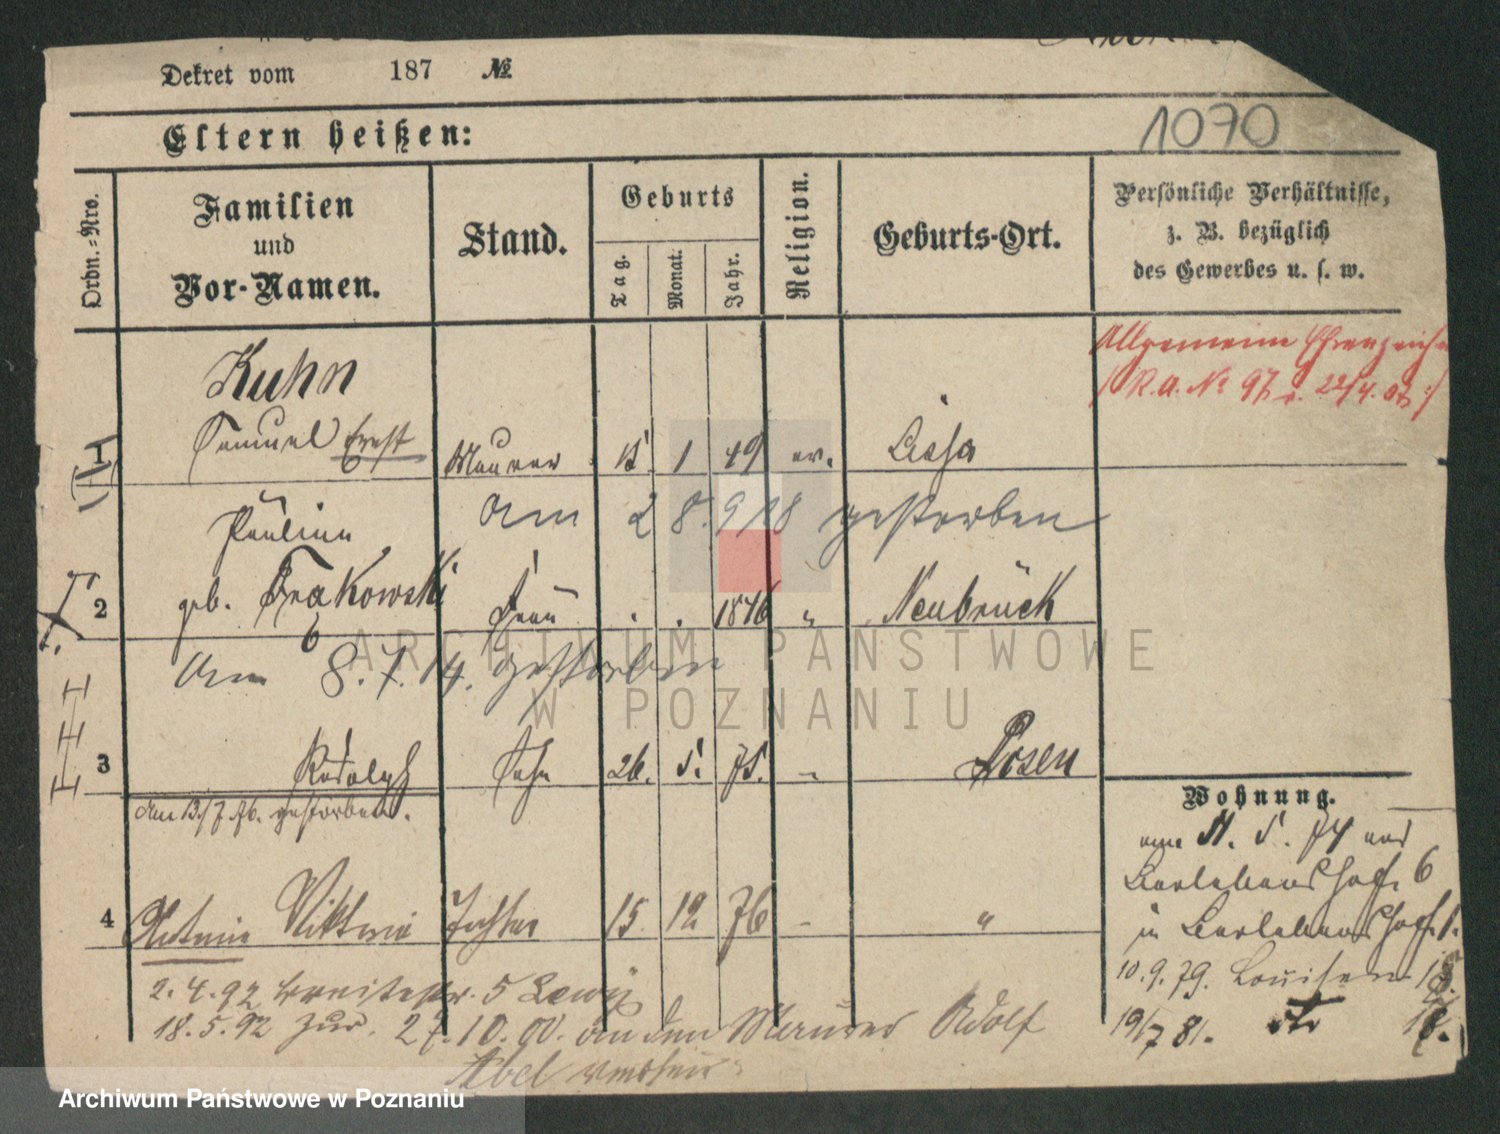 Dekret vom 187 №
1070
Eltern heißen:
Ordn.=Nro.
Familien
und
Vor-Namen.
Stand.
Geburts
Tag.
Monat.
Jahr.
Religion.
Geburts-Ort.
Persönliche Verhältnisse,
z. B. bezüglich
des Gewerbes u. s. w.
Allgemeine Ehrenzeichen
R.A. № 97 v. 22/4. 02
Kuhn
1 Samuel Ernst Maurer 15. 1 49 ev. Lissa
am 2 8. 9 18 gestorben
Pauline
2 geb. Krakowski Frau 1846 " Neubrück
Am 8. 7. 14. gestorben
3 Rudolph Sohn 26. 5. 75. " Posen
Am 13/7. 76. gestorben.
4 Viktoria Tochter 15. 12 76 - "
2. 4. 92 Breitestr. 5 Lewy
18. 5. 92 zur. 27. 10. 00. an den Maurer Adolf
Abel
Wohnung.
5. 74
6
in
10. 9. 79. Louisen
19/7 81.
ARCHIWUM PAŃSTWOWE
W POZNANIU
Archiwum Państwowe w Poznaniu